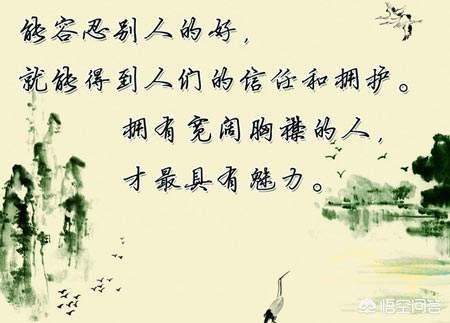 能容忍别人的好，
就能得到人们的信任和拥护。
拥有宽阔胸襟的人，
才最具有魅力。
悟空问答